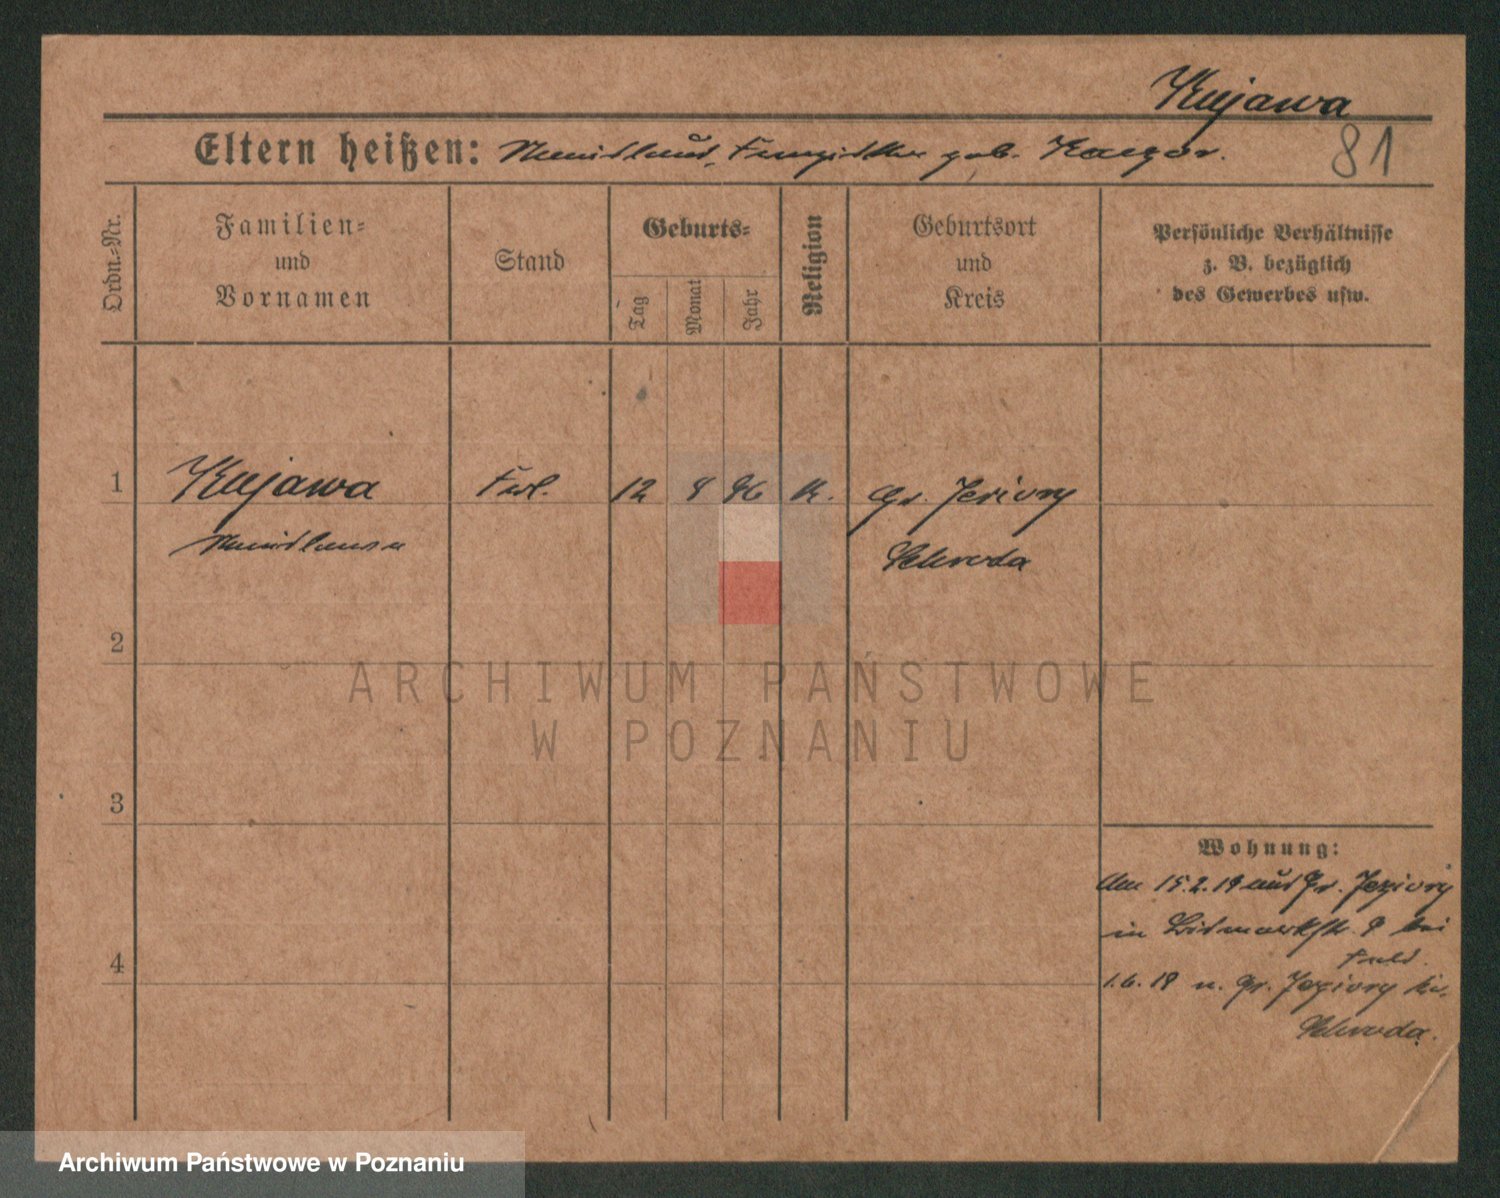 Kujawa
81
Eltern heißen: geb.
Ordn.-Nr.
Familien-
und
Vornamen
Stand
Geburts-
Tag
Monat
Jahr
Religion
Geburtsort
und
Kreis
Persönliche Verhältnisse
z. B. bezüglich
des Gewerbes usw.
1 Kujawa Frl. 12 96 K. Gr. Jeziory
Schroda
2
ARCHIWUM PAŃSTWOWE
W POZNANIU
3
Wohnung:
Am 15.2.18 aus Gr. Jeziory
in Bismarkstr. 9 bei
4
1.6.18 n. Gr. Jeziory Kr.
Schroda.
Archiwum Państwowe w Poznaniu